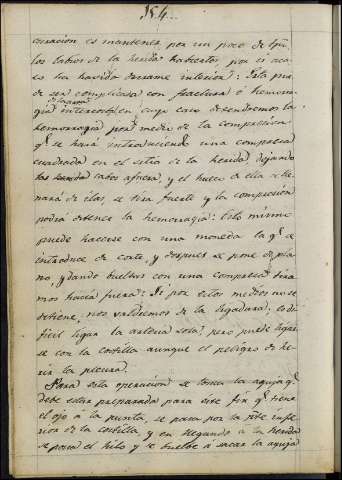 154.
curacion es mantener por un poco de tpo.
los labios de la herida habiertos, por si aca-
eso ha havido derrame interior: Esta pue
de ser complicada con fractura ó hemorra-
gia intercostal en cuyo caso detendremos la
hemorragia por medio de la compresion
qe. se hará introduciendo una compresa
cuadrada en el sitio de la herida, dejando
los cabos afuera, y el hueco de ella se lle-
nará de ilas, se tira fuerte y la compresion
podrá detener la hemorragia: Esto mismo
puede hacerse con una moneda la qe. se
introduce de corte, y despues se pone de pla-
no, y dando bueltas con una compresa tira
mos hacia fuera: Si por estos medios no se
detiene, nos valdremos de la ligadura, es di-
ficil ligar la arteria sola; pero puede ligar
se con la costilla aunque el peligro de he-
rir la pleura.
Para esta operacion se toma la aguja qe.
debe estar preparada para este fin qe. tiene
el ojo á la punta, se pasa por la pte. infe-
rior de la costilla y en llegando á la herida
se pasa el hilo y se buelve á sacar la aguja